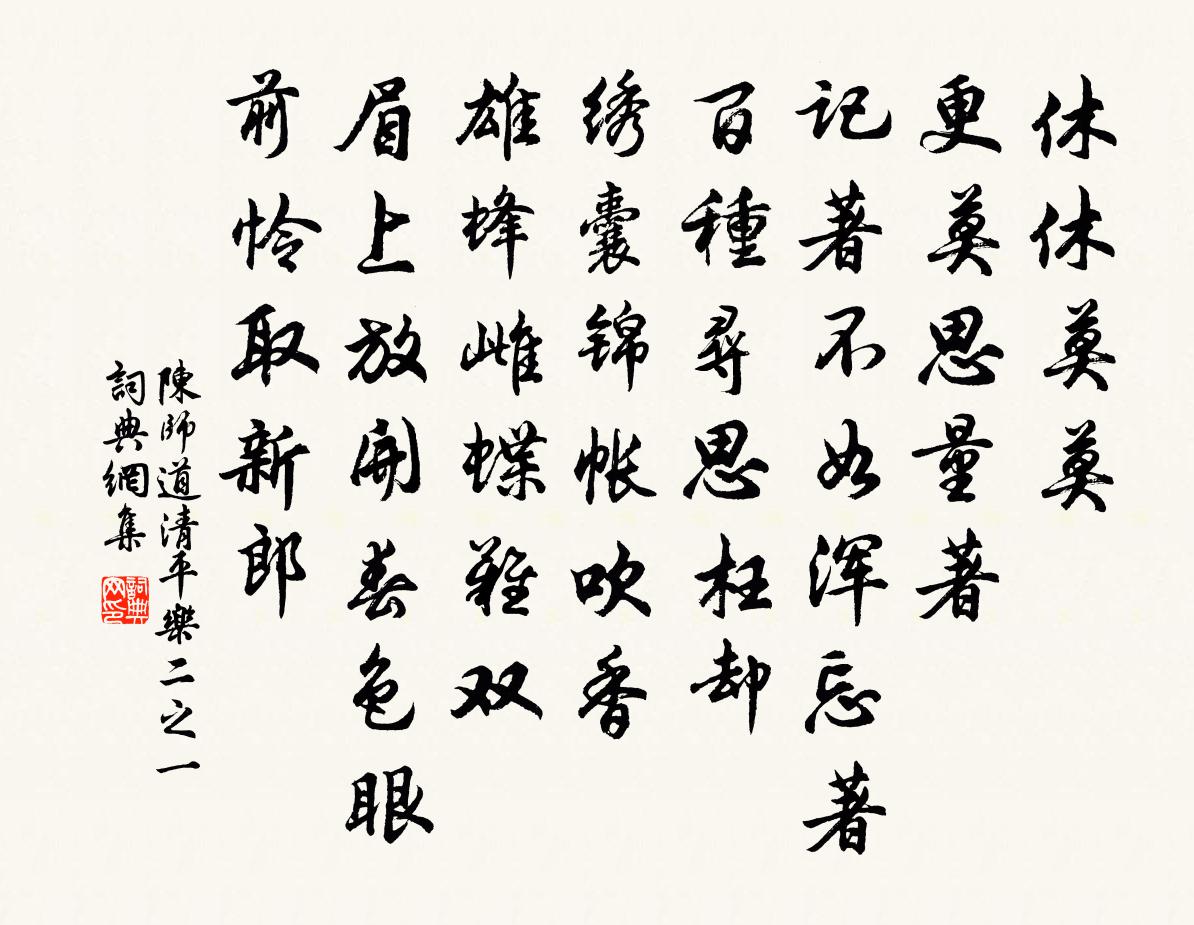 休休莫莫
更莫思量著
记著不如浑忘著
百種尋思枉却
绣囊锦帐吹香
雄蜂雌蝶難双
眉上放開春色眼
前怜取新郎
陳師道清平樂二之一
詞典網集
詞典网印